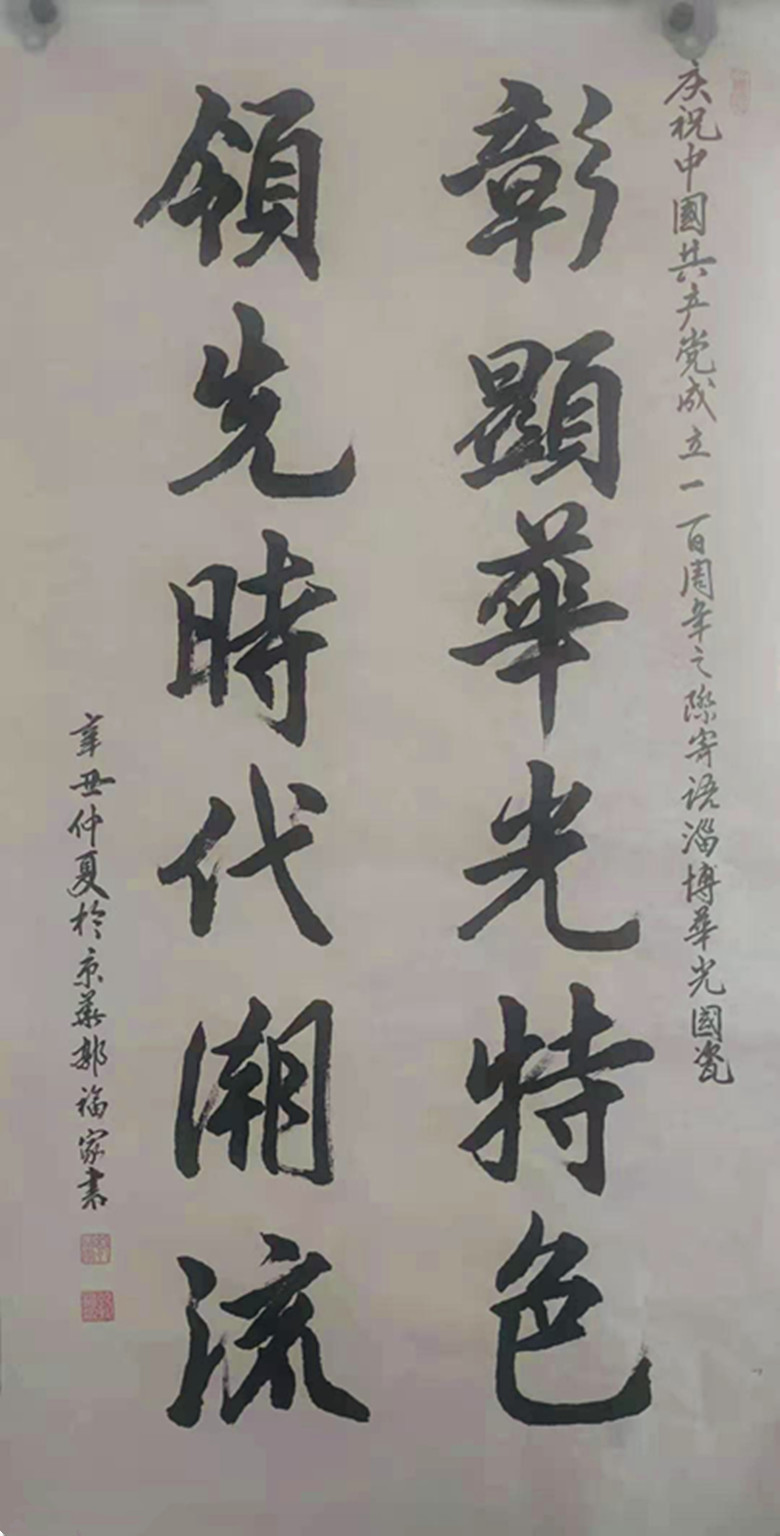 庆祝中國共产党成立一百周年之際寄语淄博華光國瓷
彰顯華光特色
領先時代潮流
辛丑仲夏於京華郭福家书